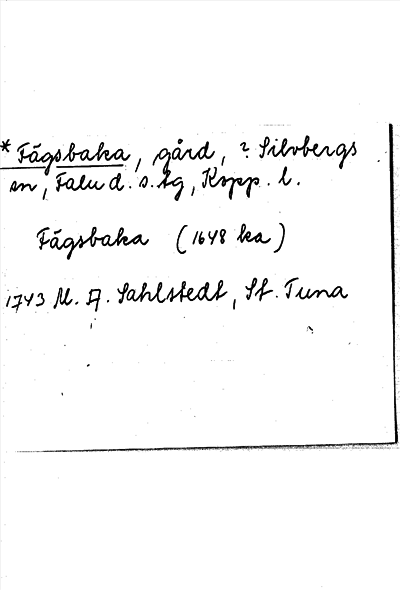 *Fägsbaka, gård, ? Silvbergs
sn, Falu d. s. tg, Kopp. l.
Fägsbaka (1648 ka)
1743 M. A. Sahlstedt, St. Tuna